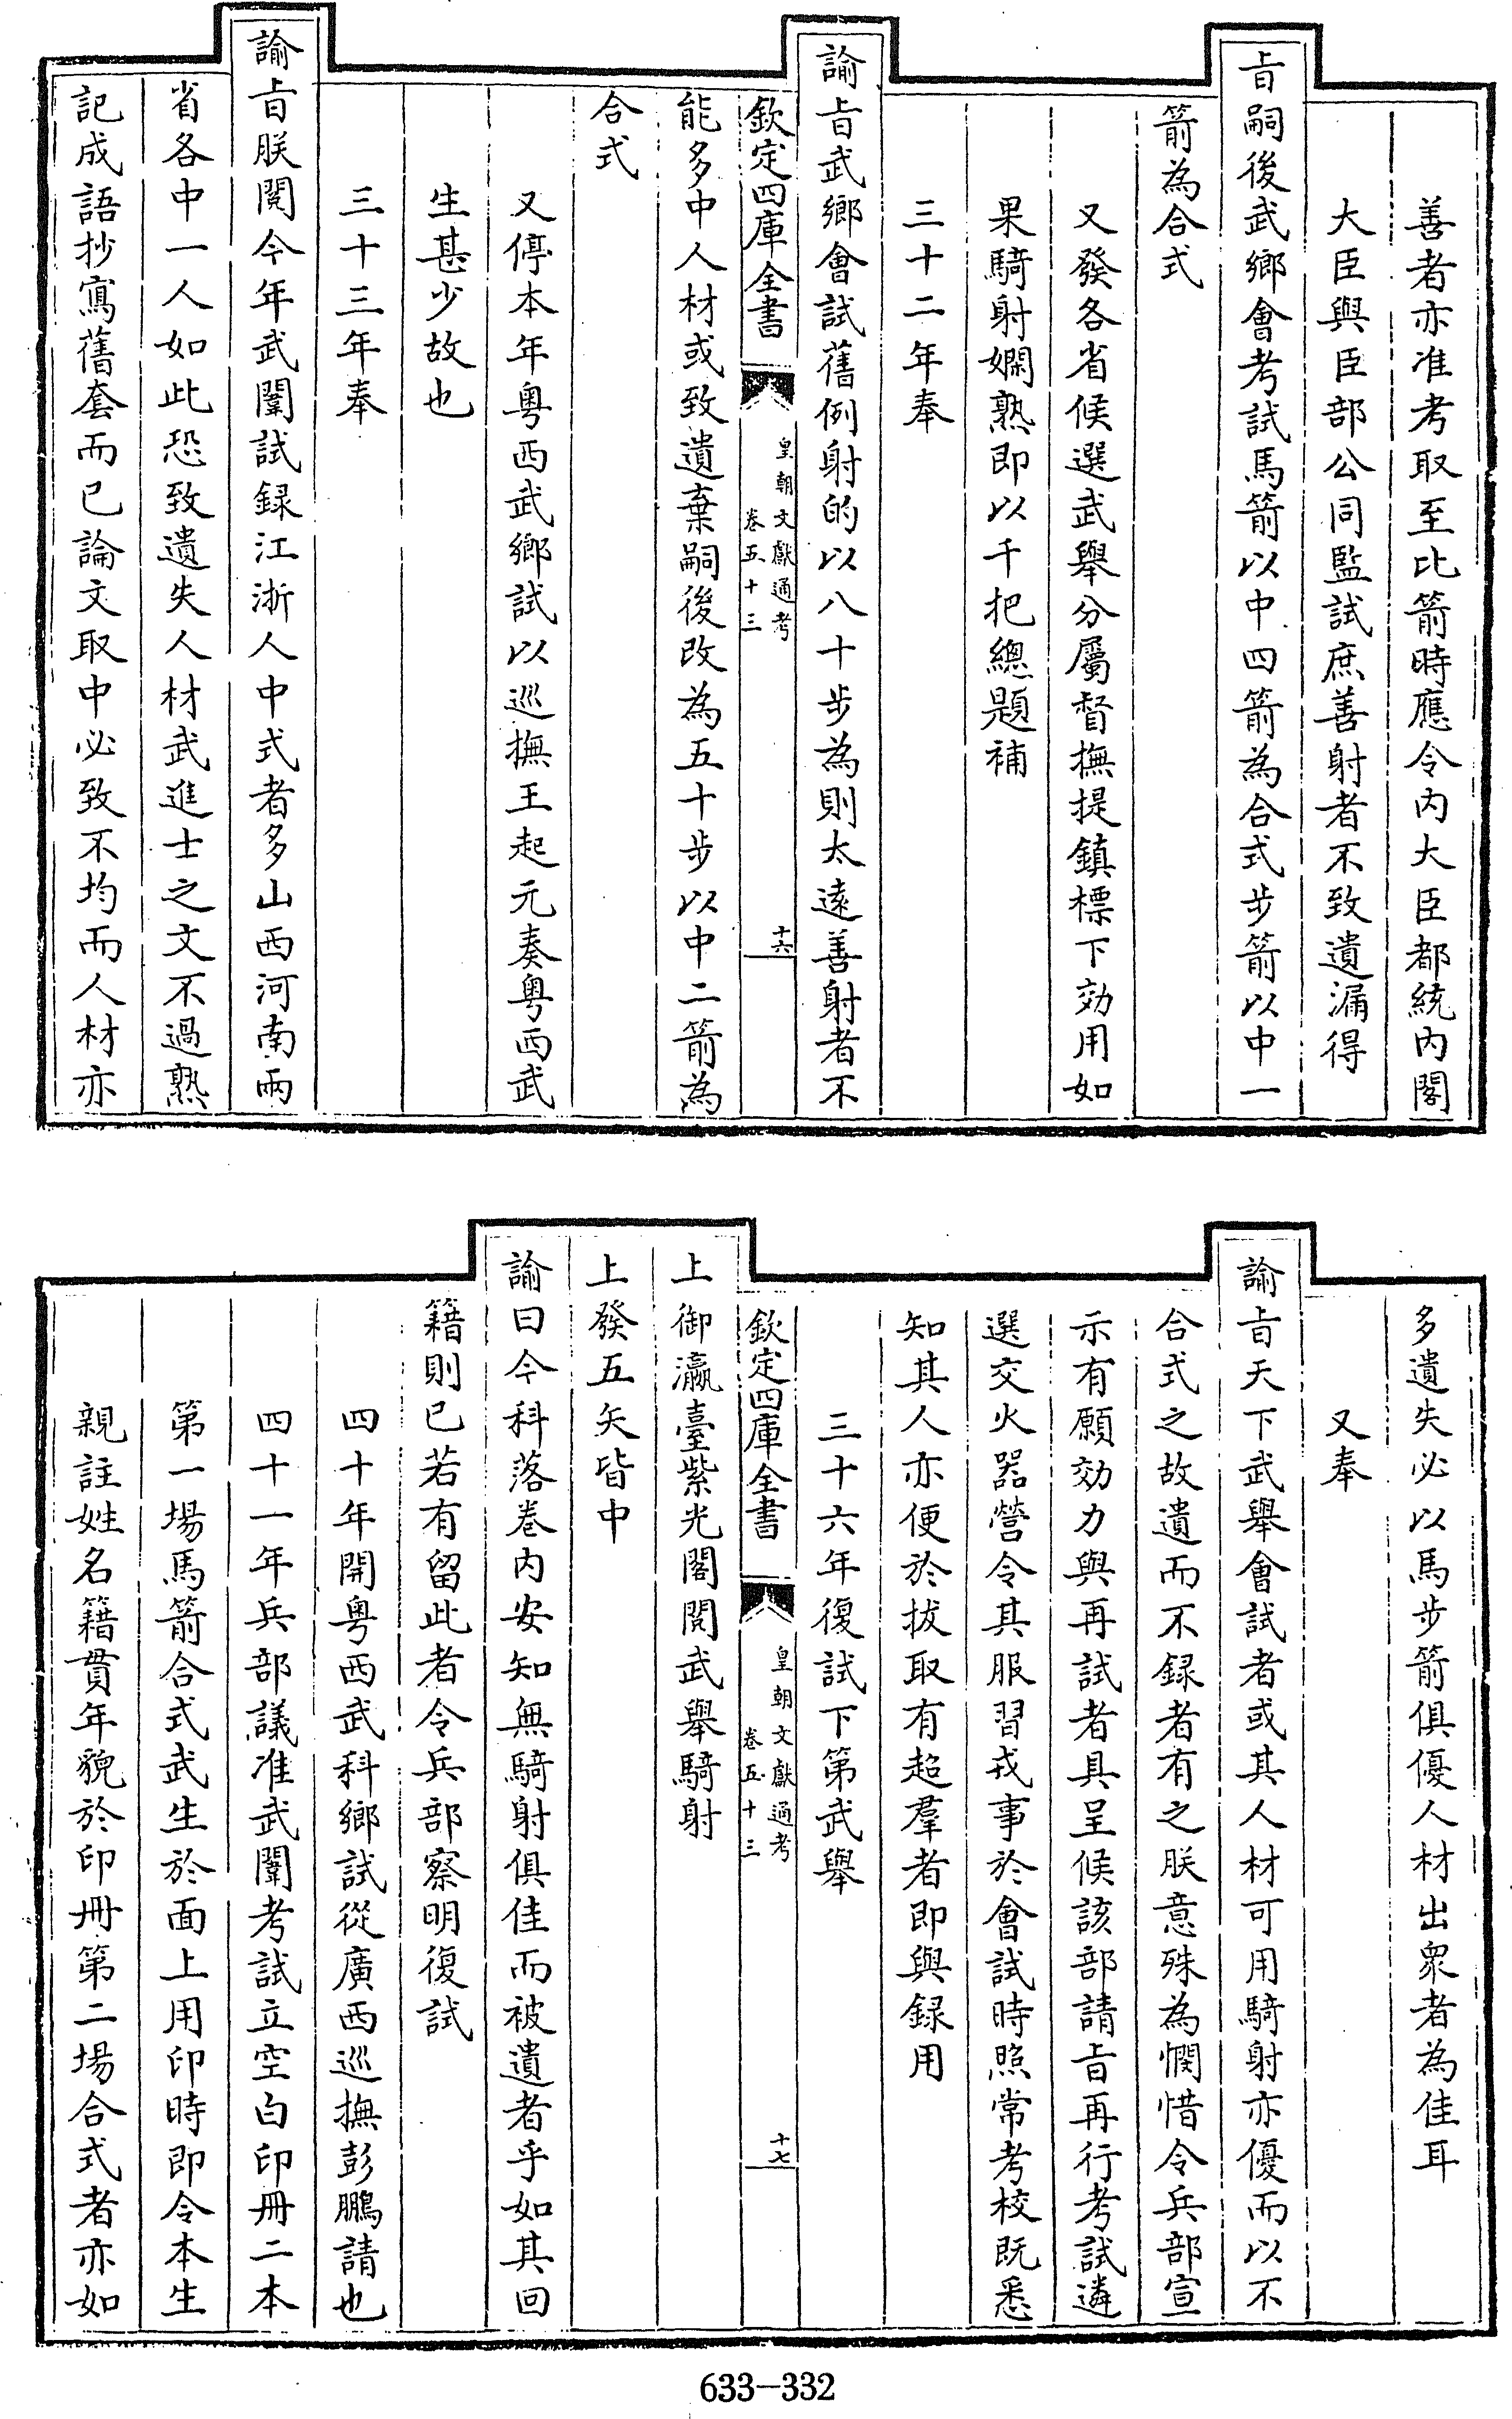 善者亦准考取至比箭時應令内大臣都統内閣
大臣與臣部公同監試庶善射者不致遺漏得
旨嗣後武鄉會考試馬箭以中四箭為合式步箭以中一
箭為合式
又發各省候選武舉分屬督撫提鎮標下効用如
果騎射嫻熟即以千把總題補
三十二年奉
諭旨武鄉會試舊例射的以八十步為則太遠善射者不
欽定四庫全書
皇朝文獻通考
卷五十三
十六
能多中人材或致遺棄嗣後改為五十步以中二箭為
合式
又停本年粤西武鄉試以巡撫王起元奏粤西武
生甚少故也
三十三年奉
諭旨朕閱今年武闈試録江浙人中式者多山西河南兩
省各中一人如此恐致遺失人材武進士之文不過熟
記成語抄寫舊套而已論文取中必致不均而人材亦
多遺失必以馬步箭俱優人材出衆者為佳耳
又奉
諭旨天下武舉會試者或其人材可用騎射亦優而以不
合式之故遺而不録者有之朕意殊為憫惜令兵部宣
示有願効力與再試者具呈候該部請旨再行考試遴
選交火器營令其服習戎事於會試時照常考校既悉
知其人亦便於拔取有超羣者即與録用
三十六年復試下第武舉
欽定四庫全書
皇朝文獻通考
卷五十三
十七
上御瀛臺紫光閣閱武舉騎射
上發五矢皆中
諭曰今科落卷内安知無騎射俱佳而被遺者乎如其回
籍則已若有留此者令兵部察明復試
四十年開粤西武科鄉試從廣西巡撫彭鵬請也
四十一年兵部議准武闈考試立空白印册二本
第一場馬箭合式武生於面上用印時即令本生
親註姓名籍貫年貌於印册第二場合式者亦如
633-332